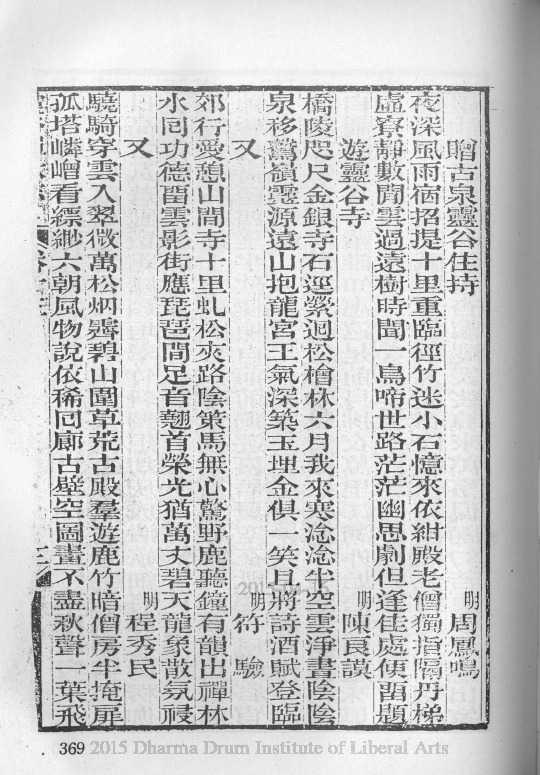 贈古泉靈谷住持　明　周鳳鳴
夜深風雨宿招提十里重臨徑竹迷小石憶來依紺殿老僧獨指隔丹梯
虛寮靜數聞雲過遠樹時聞一鳥啼世路茫茫幽思劇但逢佳處便留題
遊靈谷寺　明　陳良謨
橋陵咫尺金銀寺石逕縈迴松檜林六月我來寒淰淰半空雲淨晝陰陰
泉移鷲嶺靈源遠山抱龍宮王氣深築玉埋金俱一笑且將詩酒賦登臨
又　明　符驗
郊行愛憩山間寺十里虬松夾路陰策馬無心驚野鹿聽鐘有韻出禪林
水回功德留雲影街應琵琶間足音翹首榮光猶萬丈碧天龍象散氛祲
又　明　程秀民
驍騎穿雲入翠微萬松烟靄碧山圍草荒古殿羣遊鹿竹暗僧房半掩扉
孤塔嶙嶒看縹緲六朝風物說依稀回廊古壁空圖畫不盡秋聲一葉飛
369 2015 Dharma Drum Institute of Liberal Arts